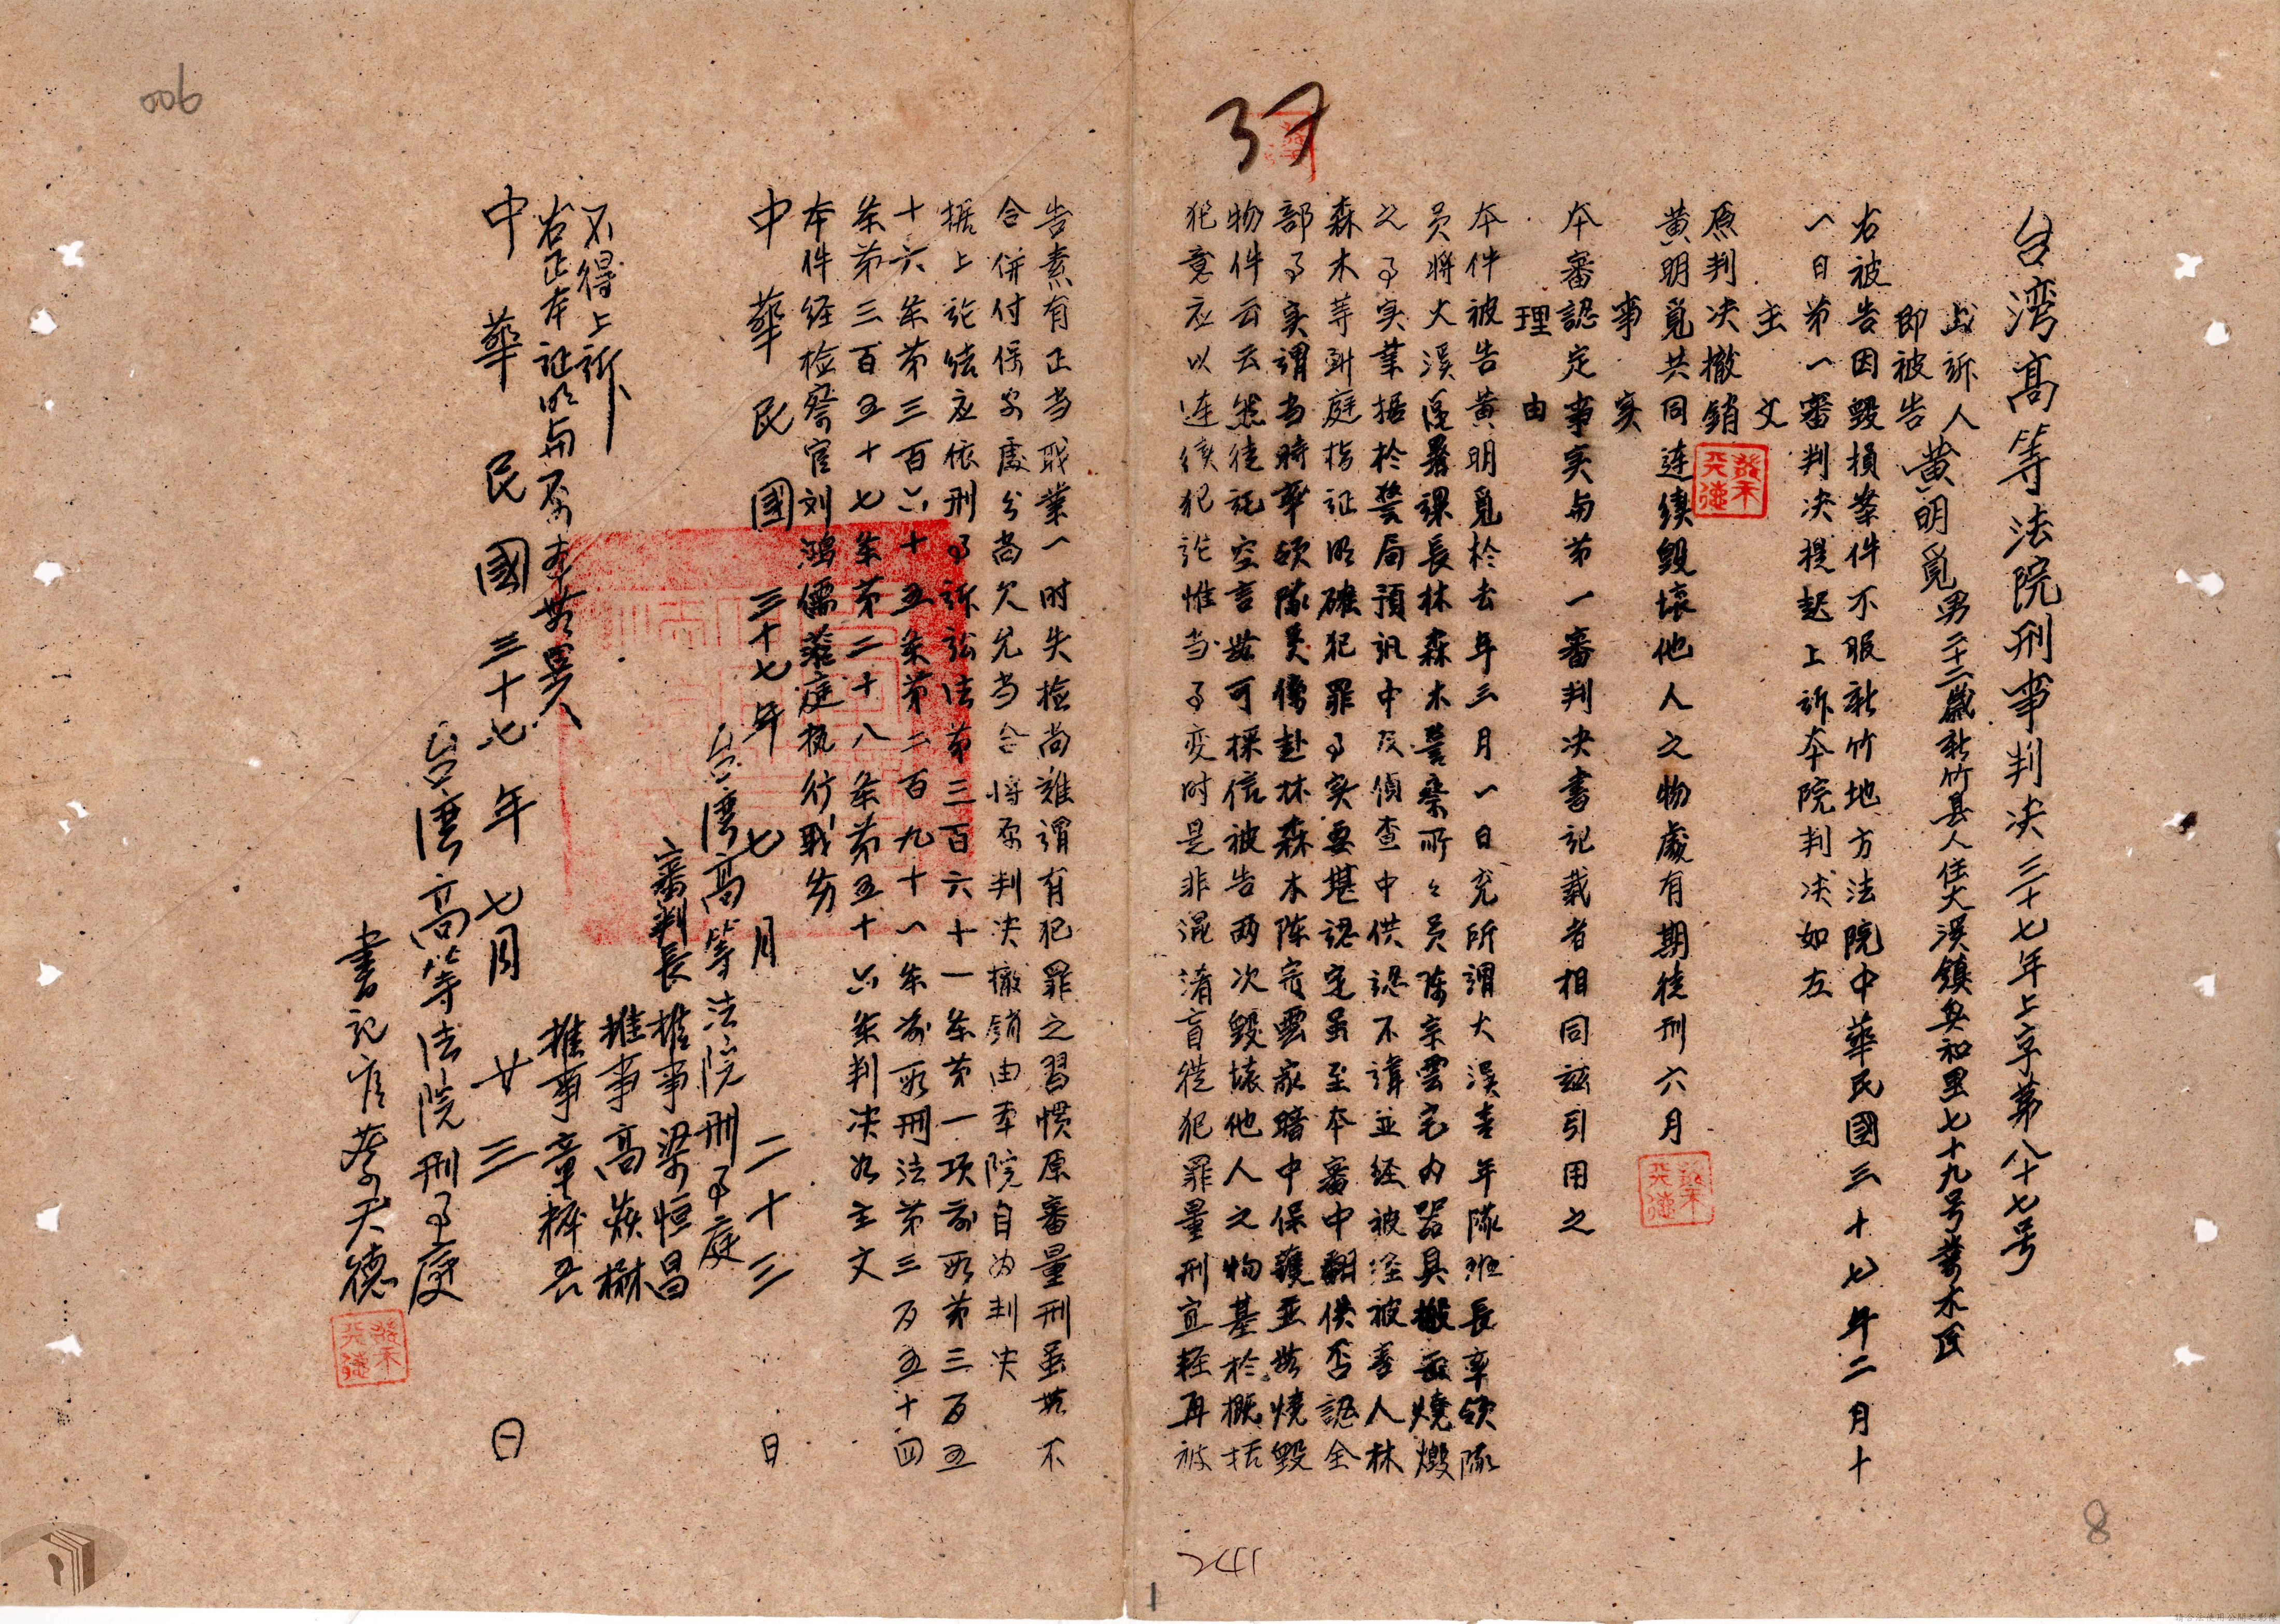 台湾高等法院刑事判決 三十七年上字第八十七号
上訴人
即被告 黄明覓 男二十二歳新竹县人住大溪鎮興和里七十九号業木匠
右被告因毀損等件不服新竹地方法院中華民國三十七年二月十
一日第一審判决提起上訴本院判决如左
主 文
原判决撤銷
黄明覓共同連續毀壞他人之物處有期徒刑六月
事 实
本審認定事实与第一審判决書記載者相同玆引用之
理 由
本件被告黄明覓於去年三月一日充所謂大溪青年隊班長率領隊
员将大溪區署課長林森木警察所々员陈宗雲宅内器具搬出燒燬
之事实業据於警局預訊中及偵查中供認不諱並経被経被害人林
森木等到庭指证明確犯罪事实要堪認定虽至本審中翻供否認全
部事实謂当時率領隊员係赴林森木陈宗雲家暗中保護並無燒毀
物件云云然徒託空言無可採信被告两次毀壞他人之物基於概括
犯意应以連续犯論惟当事变时是非混淆盲從犯罪量刑宜輕再被
告素有正当职業一时失检尚难谓有犯罪之習惯原審量刑虽無不
合併付保安處分尚欠允当合将原判决撤銷由本院自为判决
据上論结应依刑事訴訟法第三百六十一条第一項前段第三百五
十六条第三百六十五条第二百九十一条前段刑法第三百五十四
条第三百五十七条第二十八条第五十六条判决如主文
本件经检察官刘鴻儒蒞庭执行职务
中華民國三十七年七月二十三日
台湾高等法院刑事庭
審判長推事梁恒昌
推事高
推事章
不得上訴
右正本证明与原本無異
中華民國三十七年七月廿三日
台湾高等法院刑事庭
書記官蔡天德
006
8